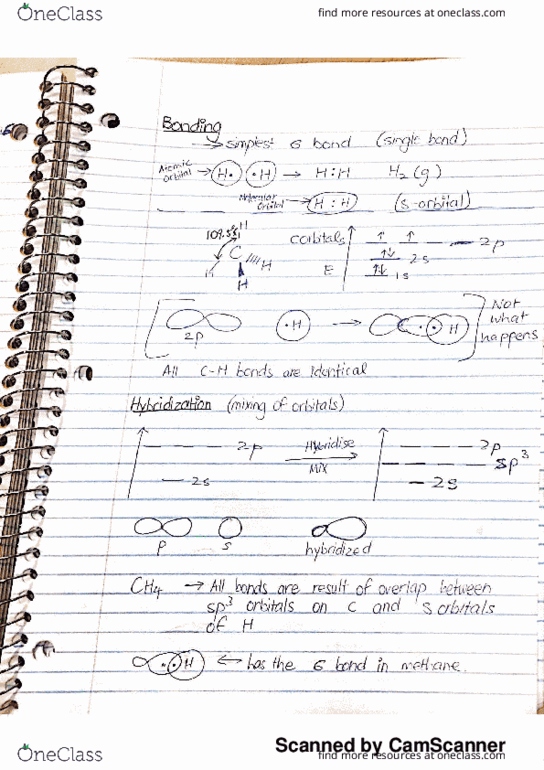 OneClass
find more resources at oneclass.com
Bonding
→ simplest σ bond (single bond)
Atomic orbital → H• •H → H:H H₂(g)
Molecular Orbital → H:H (s-orbital)
109.5° H
C
H H
H
C orbitals ↑ ↑ 2p
↑↓ 2s
E ↑↓ 1s
2p •H → H Not what happens
All C-H bonds are identical
Hybridization (mixing of orbitals)
2p Hybridise 2p
Mix sp³
2s 2s
p s hybridized
CH₄ → All bonds are result of overlap between
sp³ orbitals on C and S orbitals
of H
H ← has the σ bond in methane.
Scanned by CamScanner
OneClass
find more resources at oneclass.com